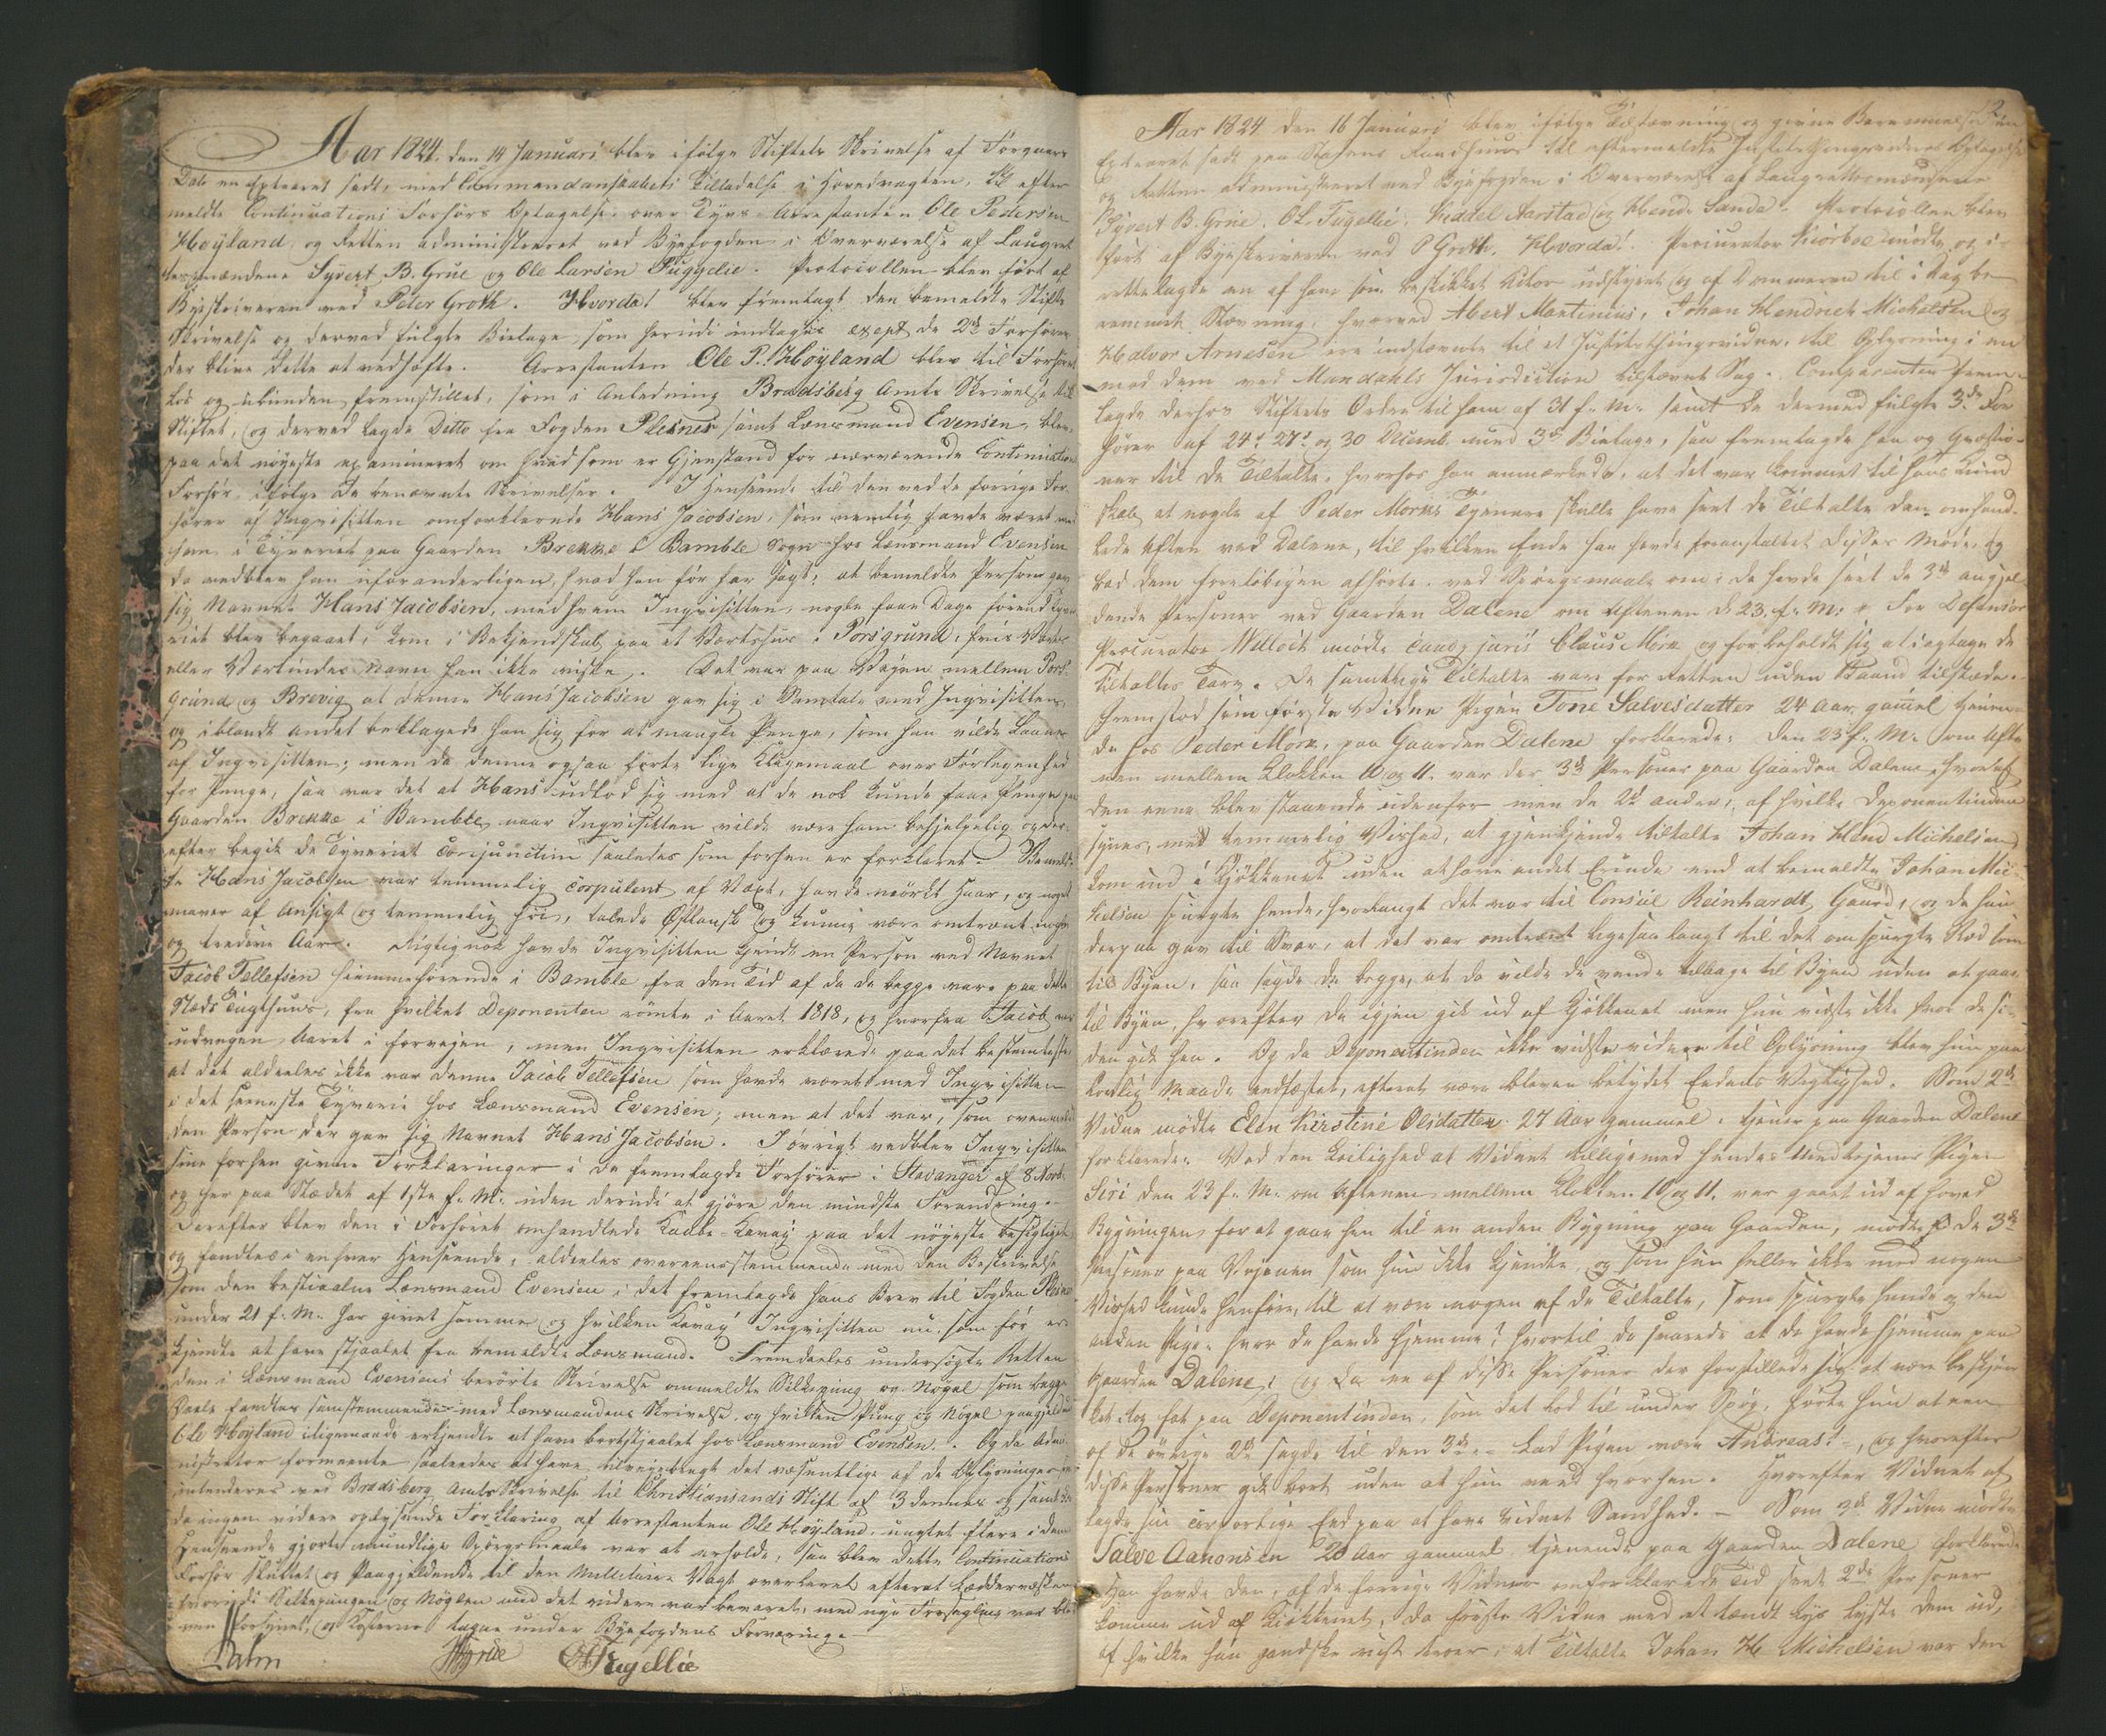 Aar 1824, den 14 Januari blev ifølge Stiftets Skrivelse af Forgaars
Dato en Extraret sadt, med Commandantskabets Tilladelse i Hovedvagten, til efter
meldte Continuations Forhørs Optagelse over Tyvs-Arrestanten Ole Pedersen
Høyland og Retten administreret ved Byefogden i Overværelse af Laugret
tesmændene Syvert B. Grue og Ole Larsen Tuggelie. Protocollen blev ført af
Byeskriveren ved Peter Groth. Hvorda! blev fremlagt den bemeldte Stifts
Skrivelse og derved fulgte Bielage, som herudi indtages except de 2de Forhører
der blive dette at vedhæfte. Arrestanten Ole P. Høyland blev til Forhøret
løs og ubunden fremstillet, som i Anledning Bradsberg Amts Skrivelse til
Stiftet, og derved lagde Ditto fra Fogden Plesner samt Lænsmand Evensen, blev
paa det nøyeste examineret om hvad som er Gjenstand for nærværende Continuation
Forhør, ifølge de benævnte Skrivelser. I Henseende til den ved de forrige For-
hører af Inqvisitten omforklarede Hans Jacobsen, som nemlig havde været med
ham i Tyveriet paa Gaarden Brekke i Bamble Sogn hos Lænsmand Evensen
da vedblev han uforanderligen, hvad han før har sagt, at bemeldte Person gav
sig Navnet Hans Jacobsen, med hvem Inqvisitten, nogle faae Dage førend Tyve
riet blev begaaet, kom i Bekjendskab paa et Værtshus i Porsgrund, hvis Værts
eller Værtindes Navn han ikke vidste. Det var paa Veyen mellem Pors-
grund og Brevig at denne Hans Jacobsen gav sig i Samtale med Inqvisitten,
og iblandt andet beklagede han sig for at mangle Penge, som han vilde laane
af Inqvisitten; men da denne ogsaa førte lige Klagemaal over Forlegenhed
for Penge, saa var det at Hans udlod sig med at de nok kunde faae Penge paa
Gaarden Brekke i Bamble, naar Inqvisitten vilde være ham behjelpelig og der-
efter begik de Tyveriet conjunctim saaledes som forhen er forklaret. Bemeld-
te Hans Jacobsen var temmelig corpulent af Vext, havde mørkt Haar, og noget
maver af Ansigt og temmelig høi, talede Østlansk og kunne være omtrent nogle
og tredive Aar. Rigtignok havde Inqvisitten kjendt en Person ved Navnet
Jacob Tellefsen hiemmehørende i Bamble fra den Tid af da de begge vare paa dette
Stæds Tugthuus, fra hvilket Deponenten rømte i Aaret 1818, og hvorfra Jacob var
undvegen Aaret i forvejen, men Inqvisitten erklærede paa det bestemteste
at det aldeeles ikke var denne Jacob Tellefsen som havde været med Inqvisitten
i det seeneste Tyverie hos Lænsmand Evensen; men at det var, som ovenmeldt
den Person der gav sig Navnet Hans Jacobsen. I øvrigt vedblev Inqvisitten
sine forhen givne Forklaringer i de fremlagde Forhører i Stavanger af 8 Novb.
og her paa Stædet af 1ste f. M. uden derudi at gjøre den mindste Forandring.
Derefter blev den i Forhøret omhandlede Kaabe-Kavay paa det nøyeste besigtiget
og fandtes i enhver Henseende, aldeeles overeensstemmende med den Beskrivelse
som den bestiaalne Lænsmand Evensen i det fremlagde hans Brev til Fogden Plesner
under 21 f. M. har givet samme og hvilken Kavay Inqvisitten nu som før er-
kjendte at have stjaalet fra bemeldte Lænsmand. Fremdeeles undersøgte Retten
den i Lænsmand Evensens berørte Skrivelse ommeldte Silkepung og Nøgel som begge
Deele fandtes samstemmende med Lænsmandens Skrivelse, og hvilken Pung og Nøgel paagjeldende
Ole Høyland iligemaade erkjendte at have bortstjaalet hos Lænsmand Evensen. Og da Admi-
nistrator formeente saaledes at have tilveiebragt det væsentlige af de Oplysninger
intenderes ved Bradsberg Amts Skrivelse til Christiansands Stift af 3 dennes og samt
da ingen videre oplysende Forklaring af Arrestanten Ole Høyland, uagtet flere i den
Henseende gjorte mundtlige Spørgsmaale var at erholde, saa blev dette Continuations
Forhør sluttet og Paagjeldende til den Militaire Vagt overleveret efterat Ladderværsken
hvorudi Silkepungen og Nøglen med det videre var bevaret, med nye Forsegling var ble-
ven forsynet, og Kosterne tagne under Byefogdens Forvaring.
Dahm Grue OLTugellie
2.
Aar 1824 den 16 Januari blev ifølge Tilstævning og givne Berammelse en
Extraret sadt paa Stadens Raadhuus til eftermeldte Justitsthingsvidnes Optagelse
og Retten administreret ved Byefogden i Overværelse af Laugrettesmændene
Syvert B. Grue. O.L. Tugellie. Siddel Aarstad og Hend: Sanda. Protocollen blev
ført af Byeskriveren ved P Groth. Hvorda! Procurator Kiørboe mødte og i-
rettelagte en af ham som beskikket Actor udstædt og af Dommeren til i Dag be
rammet Stævning, hvorved Abert Martinius, Johan Hendrich Michelsen og
Halvor Arnesen ere indstævnte til et Justitsthingsvidne, til Oplysning i en
mod dem ved Mandahls Jurisdiction tilstævnt Sag. Comparenten frem-
lagde derhos Stiftets Ordre til ham af 31 f. M. samt de dermed fulgte 3de For
hører af 24de 27de og 30 Decemb. med 3de Bielage, saa fremlagde han og Qvæstio-
ner til de Tiltalte, hvorhos han anmærkede, at det var kommet til hans Kund
skab, at nogle af Peder Mørks Tyenere skulle have seet de Tiltalte den omhand-
lede Aften ved Dalene, til hvilken Ende han havde foranstaltet Disses Møde, og
bad dem foreløbigen afhørte, ved Spørgsmaale om: de havde seet de 3de angjel-
dende Personer ved Gaarden Dalene om Aftenen d. 23. f. M: For Defensor
Procurator Willoch mødte cand. juris Claus Mörk og forbeholdt sig at iagttage de
Tiltaltes Tarv. De samtlige Tiltalte vare for Retten uden Baand tilstede.
Fremstod som første Vidne Pigen Tone Salvesdatter 24 Aar gammel tienen-
de hos Peder Mörk, paa Gaarden Dalene forklarede: Den 23 f. M. om Afte
nen mellem Klokken 10 og 11. var der 3de Personer paa Gaarden Dalene, hvoraf
den eene blev staaende udenfor men de 2de andre, af hvilke Deponentinden
synes, med temmelig Vished, at gjenkjende tiltalte Johan Hend Michelsen
kom ind i Kjøkkenet uden at have andet Erinde end at bemeldte Johan Mic-
helsen spurgte hende, hvorlangt det var til Consul Reinhardt Gaard, og da hun
derpaa gav til Svar, at det var omtrent ligesaa langt til det omspurgte Stæd som
til Byen, saa sagde de begge, at da vilde de vende tilbage til Byen uden at gaae
til Byen, hvorefter de igjen gik ud af Kjøkkenet men hun vidste ikke hvor de si-
den gik hen. Og da Deponentinden ikke vidste videre til Oplysning blev hun paa
lovlig Maade eedfæstet, efterat være bleven betydet Eedens Vigtighed. Som 2det
Vidne mødte Elen Kirstine Olsdatter 27 Aar gammel, tiener paa Gaarden Dalene
forklarede: Ved den Leilighed at Vidnet tilligemed hendes Medtiener Pigen
Siri den 23 f. M. om Aftenen mellem Klokken 10 og 11. var gaaet ud af Hoved
Bygningen for at gaae hen til en anden Bygning paa Gaarden, mødte de 3de
Personer paa Vejen som hun ikke kjendte, og som hun heller ikke med nogen
Vished kunde henføre, til at være nogen af de Tiltalte, som spurgte hende og den
anden Pige, hvor de havde hjemme? hvortil de svarede at de havde hjemme paa
Gaarden Dalene, og da en af disse Personer der forstillede sig at være beskjen-
ket, tog fat paa Deponentinden, som det lod til under Spøg, hørte hun at een
af de øvrige 2de sagde til den 3die - Lad Pigen være Andreas! -, og hvorefter
disse Personer gik bort uden at hun veed hvorhen. Hvorefter Vidnet af-
lagde sin corporlige Eed paa at have vidnet Sandhed. - Som 3de Vidne mødte
Salve Aanonsen 20 Aar gammel tjenende paa Gaarden Dalene forklarede
Han havde den, af de forrige Vidner omforklarede Tid seet 2de Personer
komme ud af Kiøkkenet, da første Vidne med et tændt Lys lyste dem ud,
af hvilke han gandske vist troer, at Tiltalte Johan H: Michelsen var den